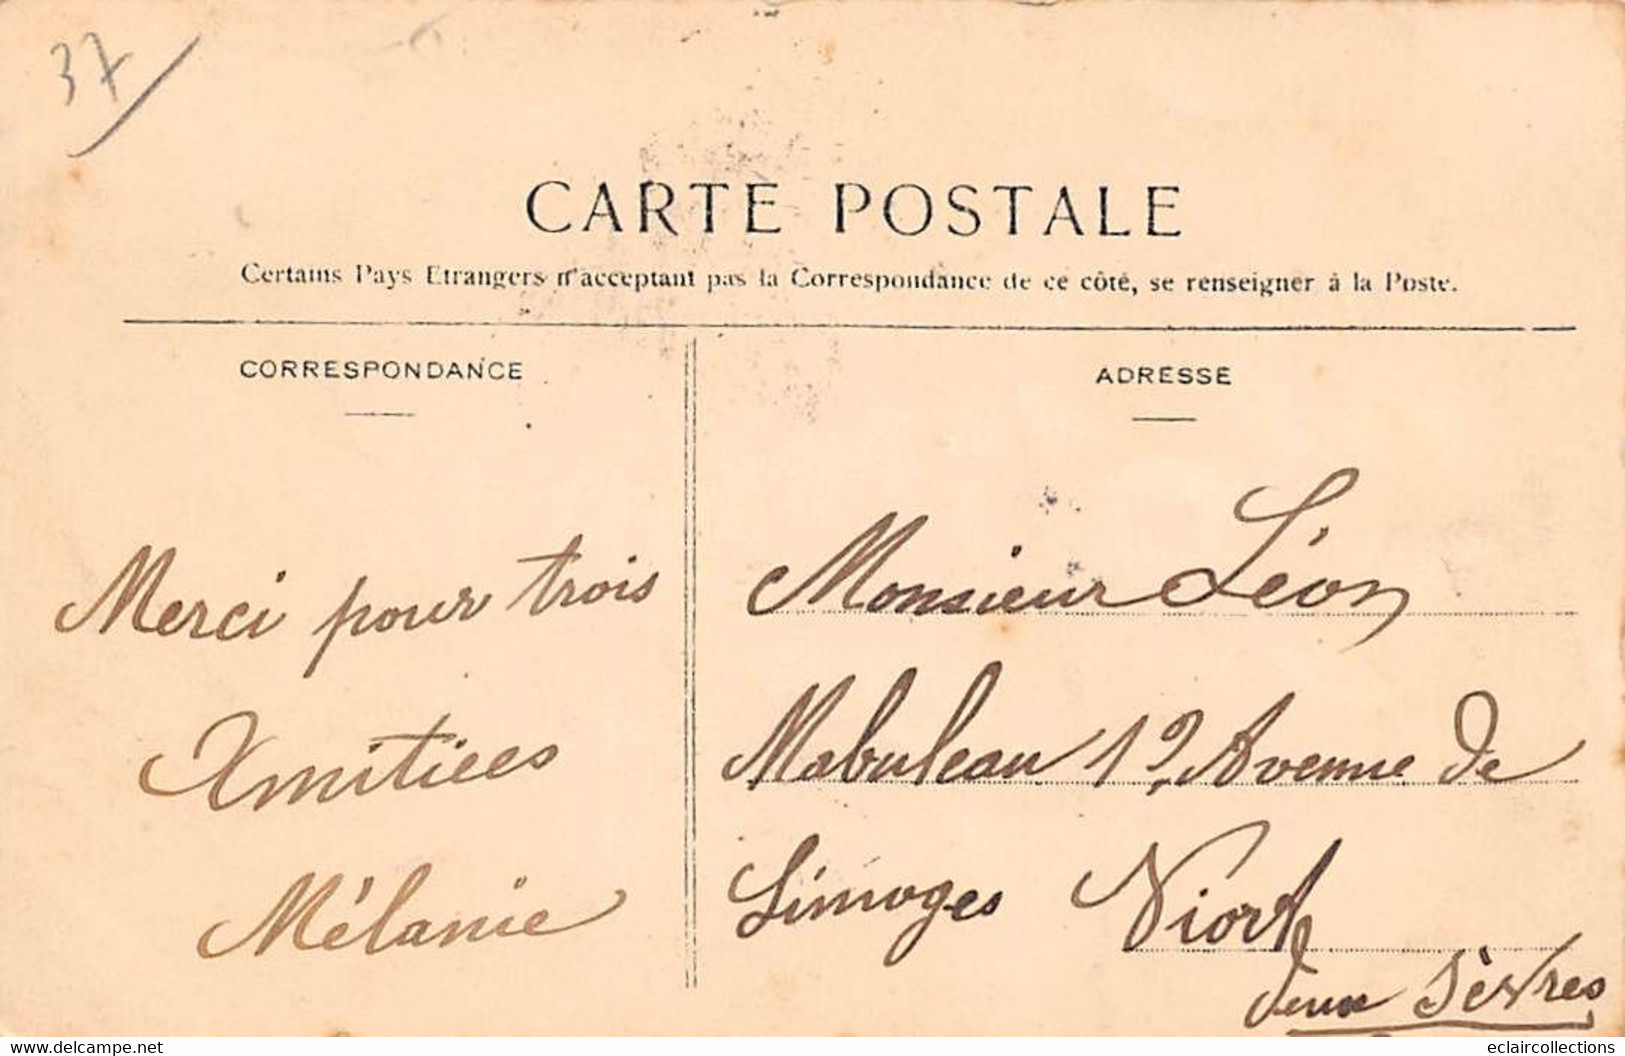 37
CARTE POSTALE
Certains Pays Etrangers n'acceptant pas la Correspondance de ce côté, se renseigner à la Poste.
CORRESPONDANCE
Merci pour trois
Amitiées
Mélanie
ADRESSE
Monsieur Léon
Mabuleau 19, Avenue de
Limoges Niort
Deux Sèvres
www.delcampe.net
eclaircollections